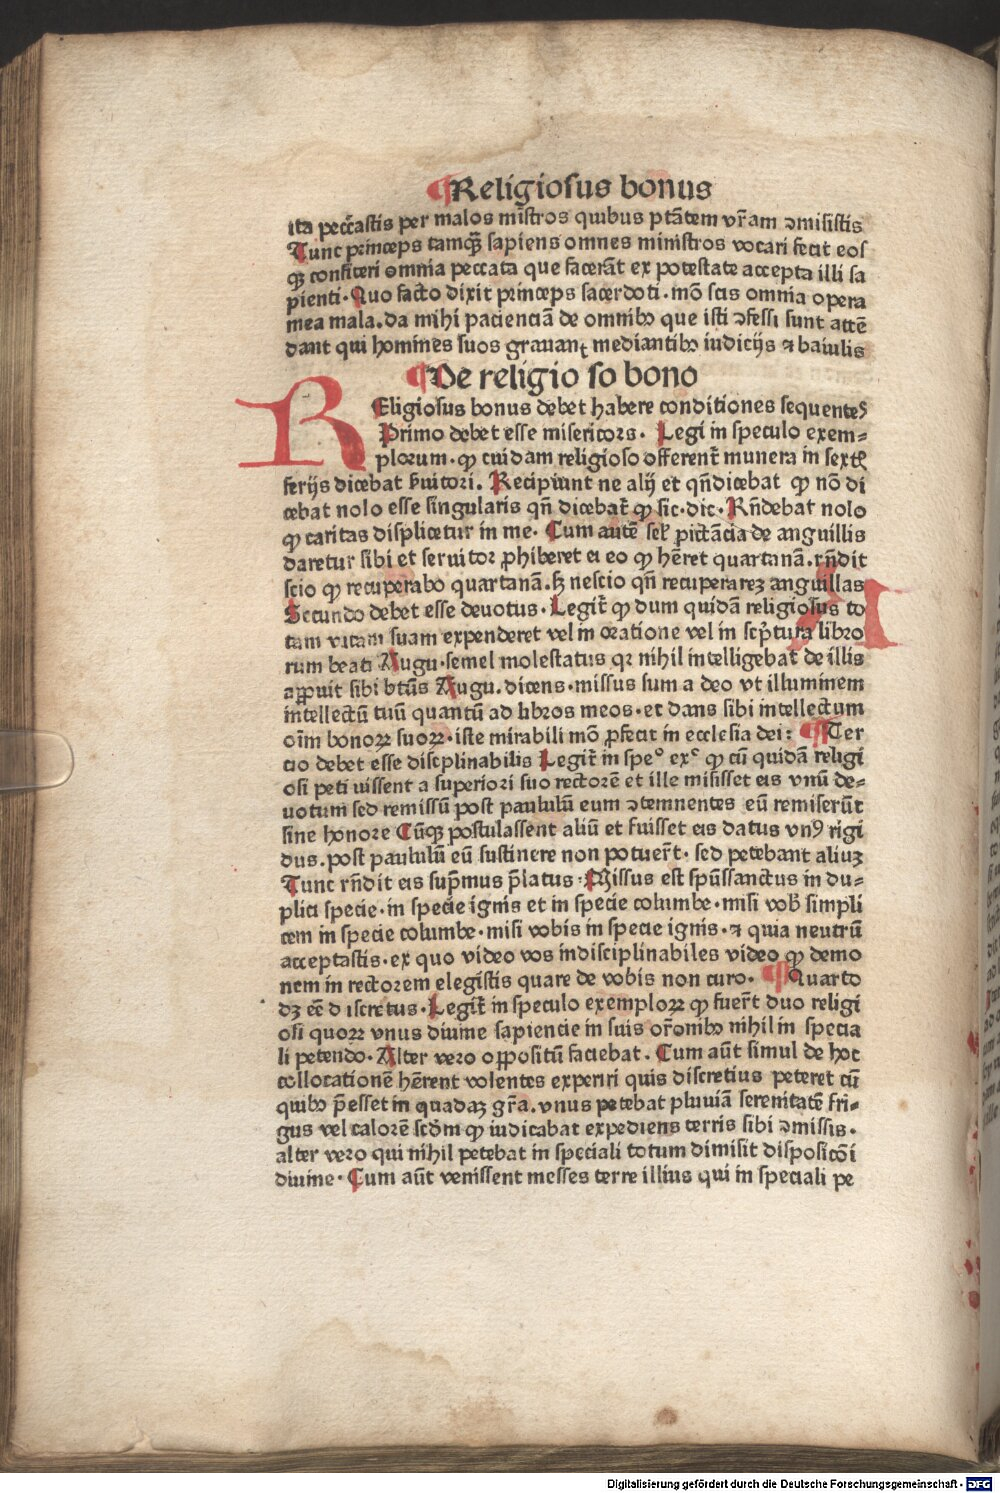 ¶Religiosus bonus
ita pecc̄astis per malos mīstros quibus ptātem vr̄am ɔmisistis
Tunc princeps tamqȝ sapiens omnes ministros vocari fecit eos
qȝ confiteri omnia peccata que facerāt ex potestate accepta illi sa
pienti. Quo facto dixit princeps sacerdoti. mō scis omnia opera
mea mala. da mihi pacienciā de omnibꝰ que isti ɔfessi sunt attē
dant qui homines suos grauant̨ mediantibꝰ iudicijs ⁊ baiulis
¶De religio so bono
REligiosus bonus debet habere conditiones sequentes
Primo debet esse misericors. Legi in speculo exem=
plorum. ꝙ cuidam religioso offerent̄ munera in sext̄
ferijs dicebat ẜuitori. Recipiunt ne alij et qn̄dicebat ꝙ nō di
cebat nolo esse singularis qn̄ dicebat̄ ꝙ sic. dic. Rn̄debat nolo
ꝙ caritas displicetur in me. Cum autē sel̄ pictācia de anguillis
daretur sibi et seruitor ꝓhiberet ei eo ꝙ hēret quartanā. rn̄dit
scio ꝙ recuperabo quartanā. sȝ nescio qn̄ recuperareȝ anguillas
Secundo debet esse deuotus. Legit̄ ꝙ dum quidā religiosus to
tam vitam suam expenderet vel in oratione vel in scp̄tura libro
rum beati Augu. semel molestatus qꝛ nihil intelligebat de illis
aꝓꝓuit sibi btūs Augu. dicens. missus sum a deo vt illuminem
intellectū tuū quantū ad libros meos. et dans sibi intellectum
oīm bonoꝝ suoꝝ. iste mirabili mō ꝓfecit in ecclesia dei: ¶Ter
cio debet esse disciplinabilis Legit̄ in speꝰ exꝰ ꝙ cū quidā religi
osi peti uissent a superiori suo rectorē et ille misisset eis vnū de=
uotum sed remissū post paululū eum ɔtemnentes eū remiserūt
sine honore Cūqȝ postulassent aliū et fuisset eis datus vnꝰ rigi
dus. post paululū eū sustinere non potuer̄t. sed petebant aliuȝ
Tunc rn̄dit eis sup̄mus p̄latus. Missus est spūssanctus in du=
plici specie. in specie ignis et in specie columbe. misi vob̄ simpli
cem in specie columbe. misi vobis in specie ignis. ⁊ quia neutrū
acceptastis. ex quo video vos indisciplinabiles video ꝙ demo
nem in rectorem elegistis quare de vobis non curo. ¶Quarto
dȝ eē d iscretus. Legit̄ in speculo exemploꝝ ꝙ fuer̄t duo religi
osi quoꝝ vnus diuine sapiencie in suis or̄onibꝰ nihil in specia
li petendo. Alter vero oꝓpositū faciebat. Cum aūt simul de hoc
collocationē hērent volentes experiri quis discretius peteret cū
quibꝰ p̄esset in quadaȝ gr̄a. vnus petebat pluuiā serenitatē fri=
gus vel calorē scd̄m ꝙ iudicabat expediens terris sibi ɔmissis.
alter vero qui nihil petebat in speciali totum dimisit dispositōi
diuine. Cum aūt venissent messes terre illius qui in speciali pe
Digitalisierung gefördert durch die Deutsche Forschungsgemeinschaft - DFG